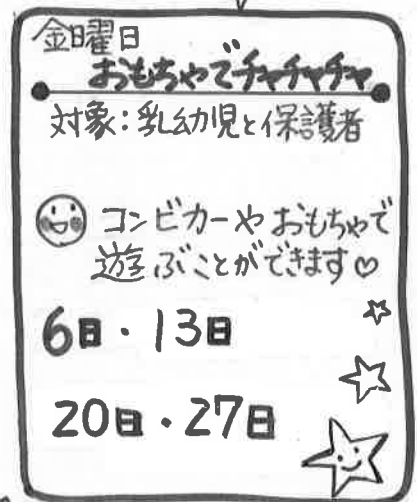 金曜日
おもちゃでチャチャチャ
対象：乳幼児と保護者
コンビカーやおもちゃで
遊ぶことができます♡
6日・13日
20日・27日